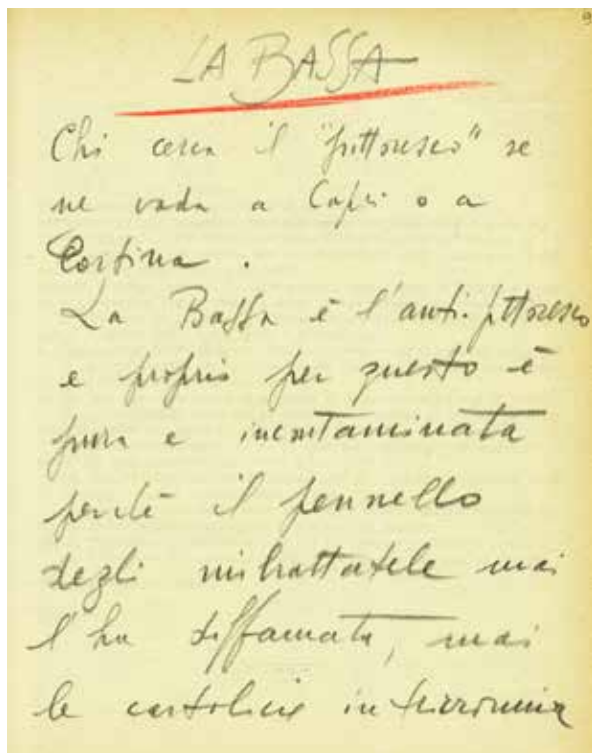 9
LA BASSA
Chi cerca il "pittoresco" se
ne vada a Capri o a
Cortina.
La Bassa è l'anti-pittoresco
e proprio per questo è
pura e incontaminata
perché il pennello
degli imbrattatele mai
l'ha diffamata, mai
le cartoline in tricromia